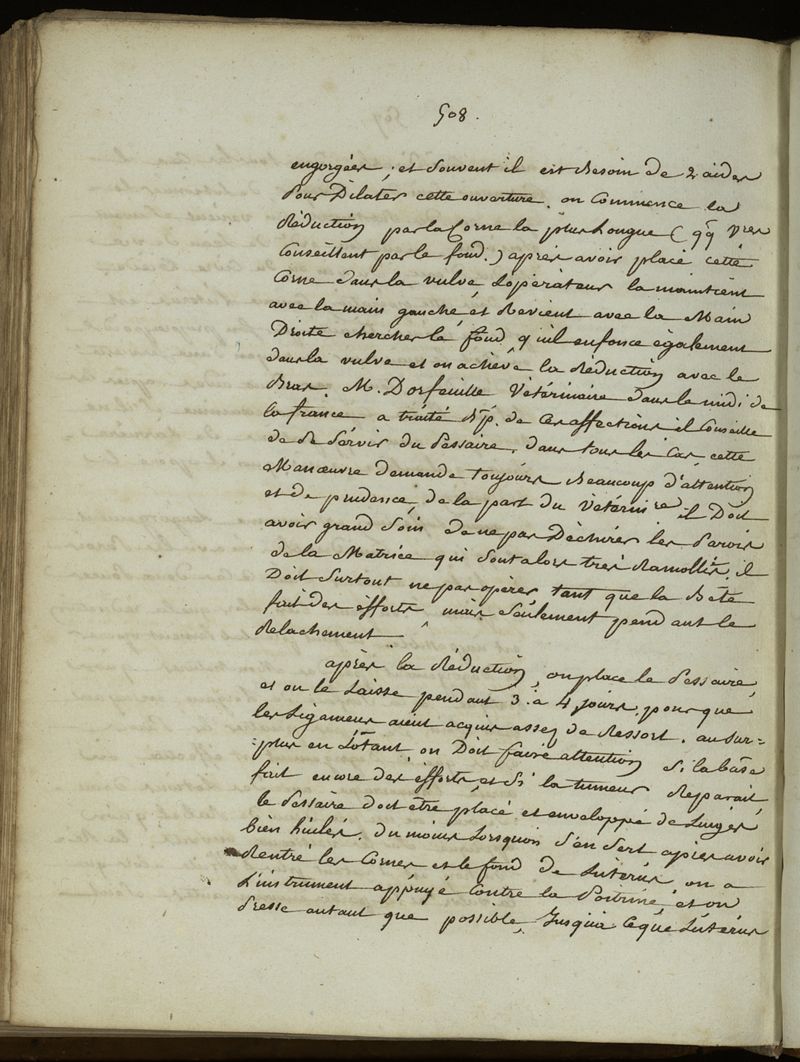 508.
engorgées, et souvent il est besoin de 2 aides
pour Dilater cette ouverture. on Commence la
Réduction par la Corne la plus Longue (qq vres
Conseillent par le fond.) après avoir placé cette
Corne dans la vulve, L'opérateur la maintient
avec la main gauche, et Revient avec la Main
Droite chercher le fond, qu'il enfonce également
dans la vulve et on achève la Réduction avec le
Bras. M. Dorfeuille Vétérinaire dans le midi de
la france a traité Bp. de Ces affections il Conseille
de se servir du Pessaire, dans tous les Cas, cette
Manœuvre demande toujours Beaucoup d'attention
et de prudence, de la part du Vétérinire il Doit
avoir grand Soin de ne pas Déchirer les Parois
de la Matrice qui sont alors très Ramollies, il
Doit surtout ne pas opérer tant que la Bête
fait des éfforts mais Seulement pendant le
Relachement
après la Réduction, on place le Pessaire,
et on le Laisse pendant 3. à 4 jours, pour que
les Ligamens aient acquis assez de Ressort. au sur=
=plus en L'ôtant on Doit faire attention si la bête
fait encore des éfforts, et si la tumeur Reparait,
le Pessaire doit être placé et enveloppé de Linges
bien huilés. Du moins Lorsquon s'en sert après avoir
Rentré les Cornes et le fond de L'utérus, on a
L'instrument appuyé Contre la Poitrine, et on
Presse autant que possible, Jusqu'à Ceque L'utérus